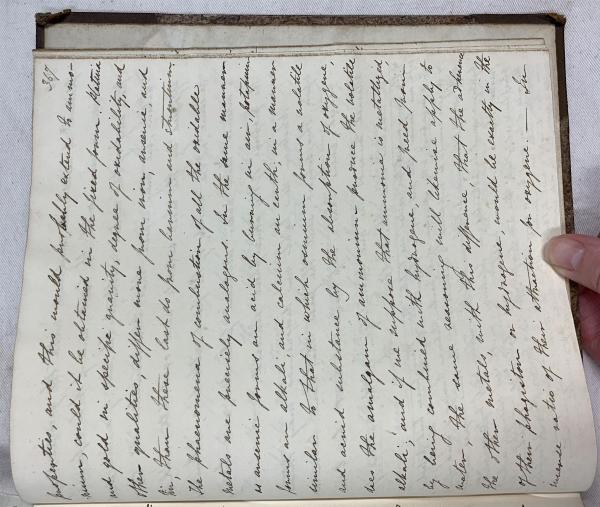 367
properties, and this would probably extend to ammo-
nium, could it be obtained in the fixed form. Platina
and gold in specific gravity, degree of oxidability, and
other qualities, differ more from iron, arsenic, and
tin, than these last do from barium and strontium.
The phaenomena of combustion of all the oxidable
metals are precisely analogous. In the same manner
as arsenic forms an acid by burning in air, potassium
forms an alkali, and calcium an earth; in a manner
similar to that in which osmium forms a volatile
and acrid substance by the absorption of oxygene,
does the amalgam of ammonium produce the volatile
alkali; and if we suppose that ammonia is metallized,
by being combined with hydrogene, and freed from
water, the same reasoning will likewise apply to
the other metals, with this difference, that the adherence
of their phlogiston or hydrogene, would be exactly in the
inverse ratio of their attraction for oxygene. — In